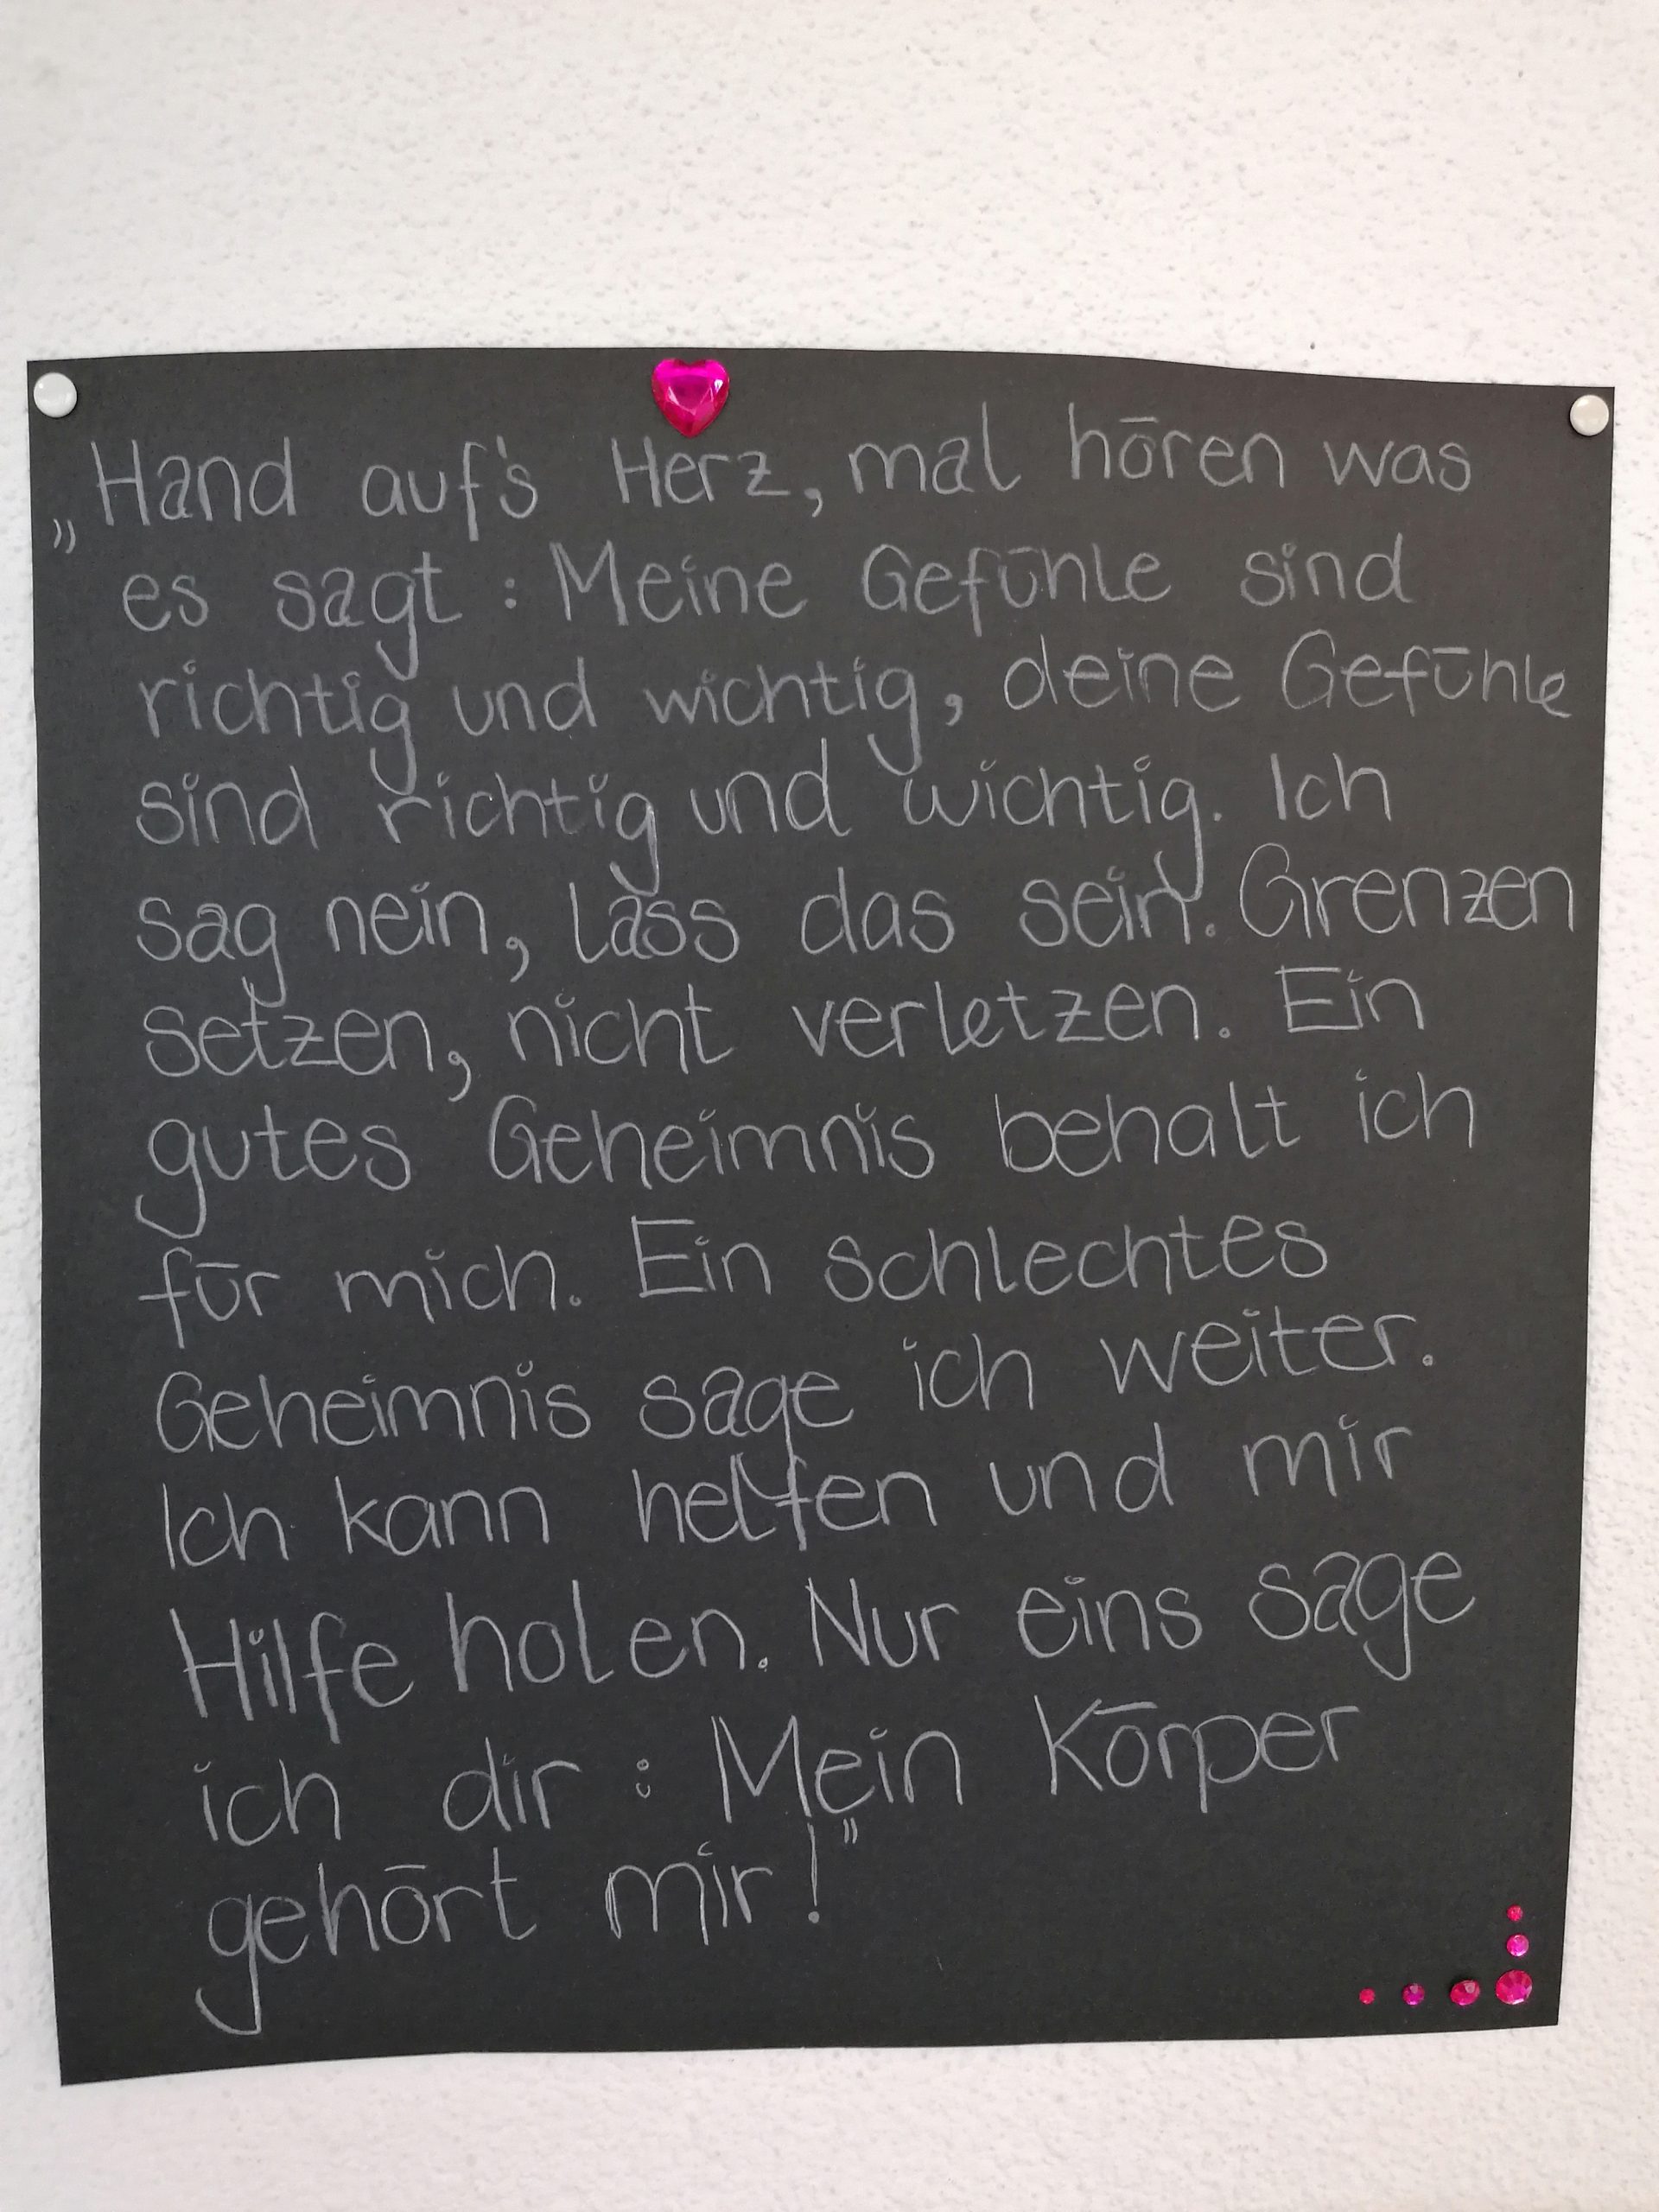 „Hand auf's Herz, mal hören was
es sagt: Meine Gefühle sind
richtig und wichtig, deine Gefühle
sind richtig und wichtig. Ich
sag nein, lass das sein. Grenzen
setzen, nicht verletzen. Ein
gutes Geheimnis behalt ich
für mich. Ein schlechtes
Geheimnis sage ich weiter.
Ich kann helfen und mir
Hilfe holen. Nur eins sage
ich dir: Mein Körper
gehört mir!"